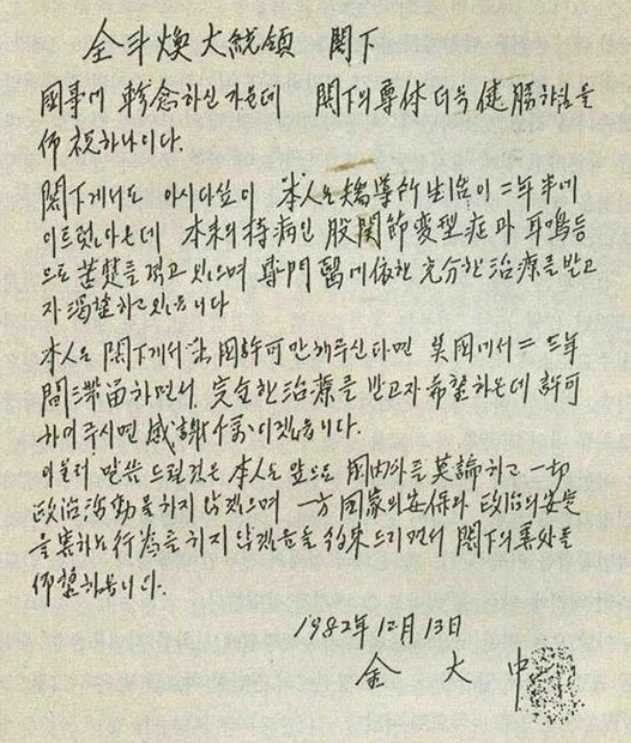 全斗煥大統領 閣下
國事에 軫念하신 가운데 閣下의 尊体 더욱 健勝하심을
仰祝하나이다.
閣下게서도 아시다싶이 本人은 矯導所 生活이 二年半에
이르렀아온데 本来의 持病인 股関節変型症과 耳鳴等
으로 苦楚를 격고 있으며 専門醫에 依한 充分한 治療를 받고
자 渴望하고 있읍니다
本人은 閣下게서 出國許可만 해주신다면 美國에서 二 三年
間 滯留하면서 完全한 治療를 받고자 希望하온데 許可
하여 주시면 感謝千萬이겠읍니다.
아울러 말씀 드릴 것은 本人은 앞으로 國内外를 莫論하고 一切
政治活動을 하지 않겠으며 一方 国家의 安保와 政治의 安定
을 害하는 行為를 하지 않겠음을 約束드리면서 閣下의 善処를
仰望하옵니다.
1982年 12月 13日
金 大 中